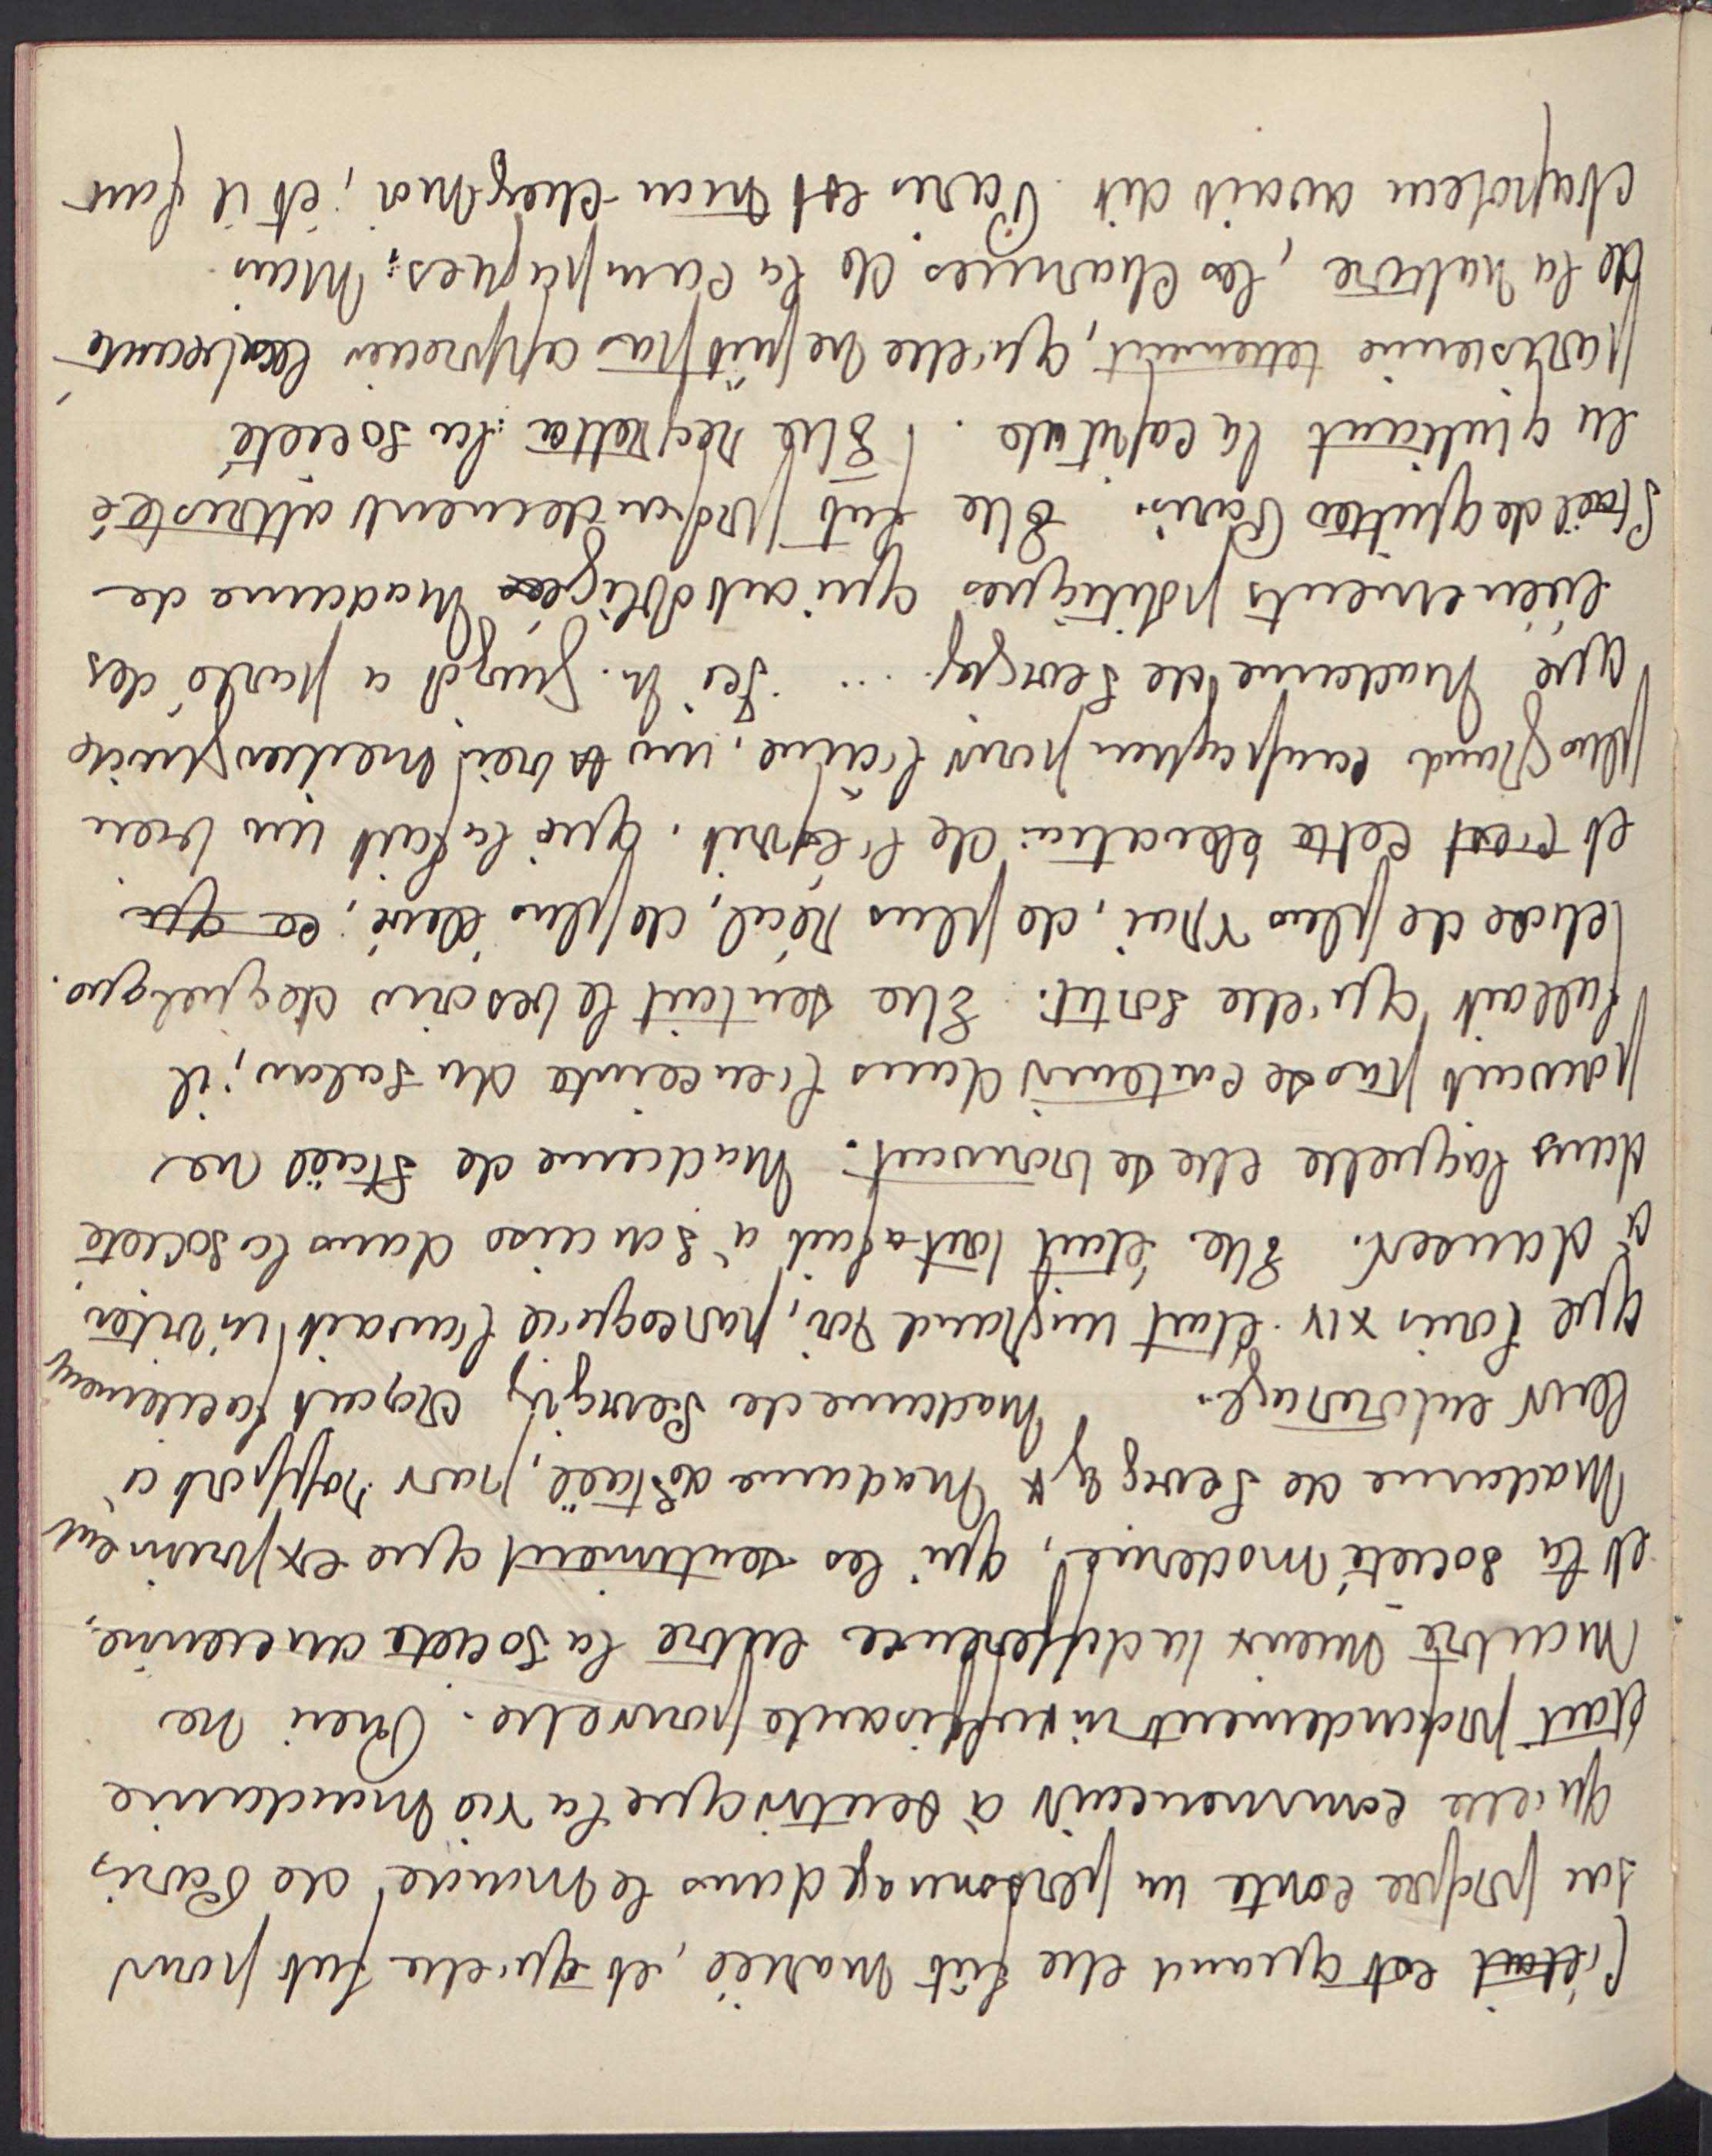 C'était est quand elle fût mariée, et qu'elle fut pour
son propre conte un personnage dans le monde de Paris,
qu'elle commençait à sentir que la vie mondaine
était profondement insuffisante pour elle. Rien ne
montre mieux la difference entre la societe ancienne,
et la societé moderne, que les sentiment que expriment
Madame de Sevigny et Madame de Staël, par rapport à
leur entourage. Madame de Sevigny croyait facilement
que Louis XIV était un grand roi, parcequ'il l'avait inviter
à danser. Elle était tout a fait à son aise dans la societe
dans laquelle elle se trouvait. Madame de Staël ne
pouvait pas se contenir dans l'enceinte du salon; il
fallait qu'elle sortit. Elle sentait le besoin de quelque
chose de plus vrai, de plus réel, de plus élevé; ce que
et c'est cette elevation de l'esprit, qui la fait un bien
plus grand compagnon pour l'âme, un bien meilleur guide
que Madame de Sevigny. ... Ici M. Guizot a parlé des
évènements politiques qui ont obligées Madame de
Staël de quitter Paris. Elle fut profondement attristée
en quittant la capitale. Elle regretta la societé
parisienne tellement, qu'elle ne pût pas apprecier les beauté
de la nature, les charmes de la campagnes; Mais
Napoleon avait dit Paris est mon chez moi; et il faut